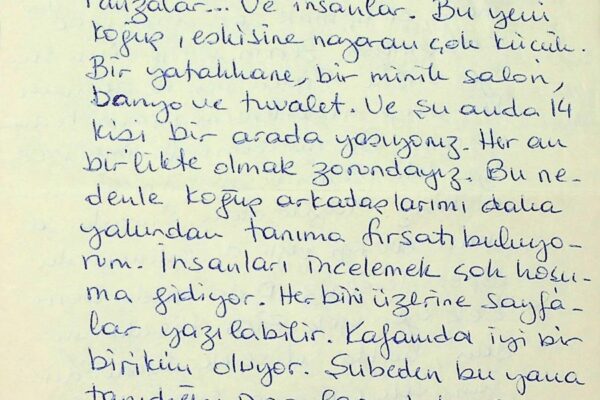 ranzalar... Ve insanlar. Bu yeni
koğuş, eskisine nazaran çok küçük.
Bir yatakhane, bir minik salon,
banyo ve tuvalet. Ve şu anda 14
kişi bir arada yaşıyoruz. Her an
birlikte olmak zorundayız. Bu ne-
denle koğuş arkadaşlarımı daha
yakından tanıma fırsatı buluyo-
rum. İnsanları incelemek çok hoşu-
ma gidiyor. Her biri üzerine sayfa-
lar yazılabilir. Kafamda iyi bir
birikim oluyor. Şubeden bu yana